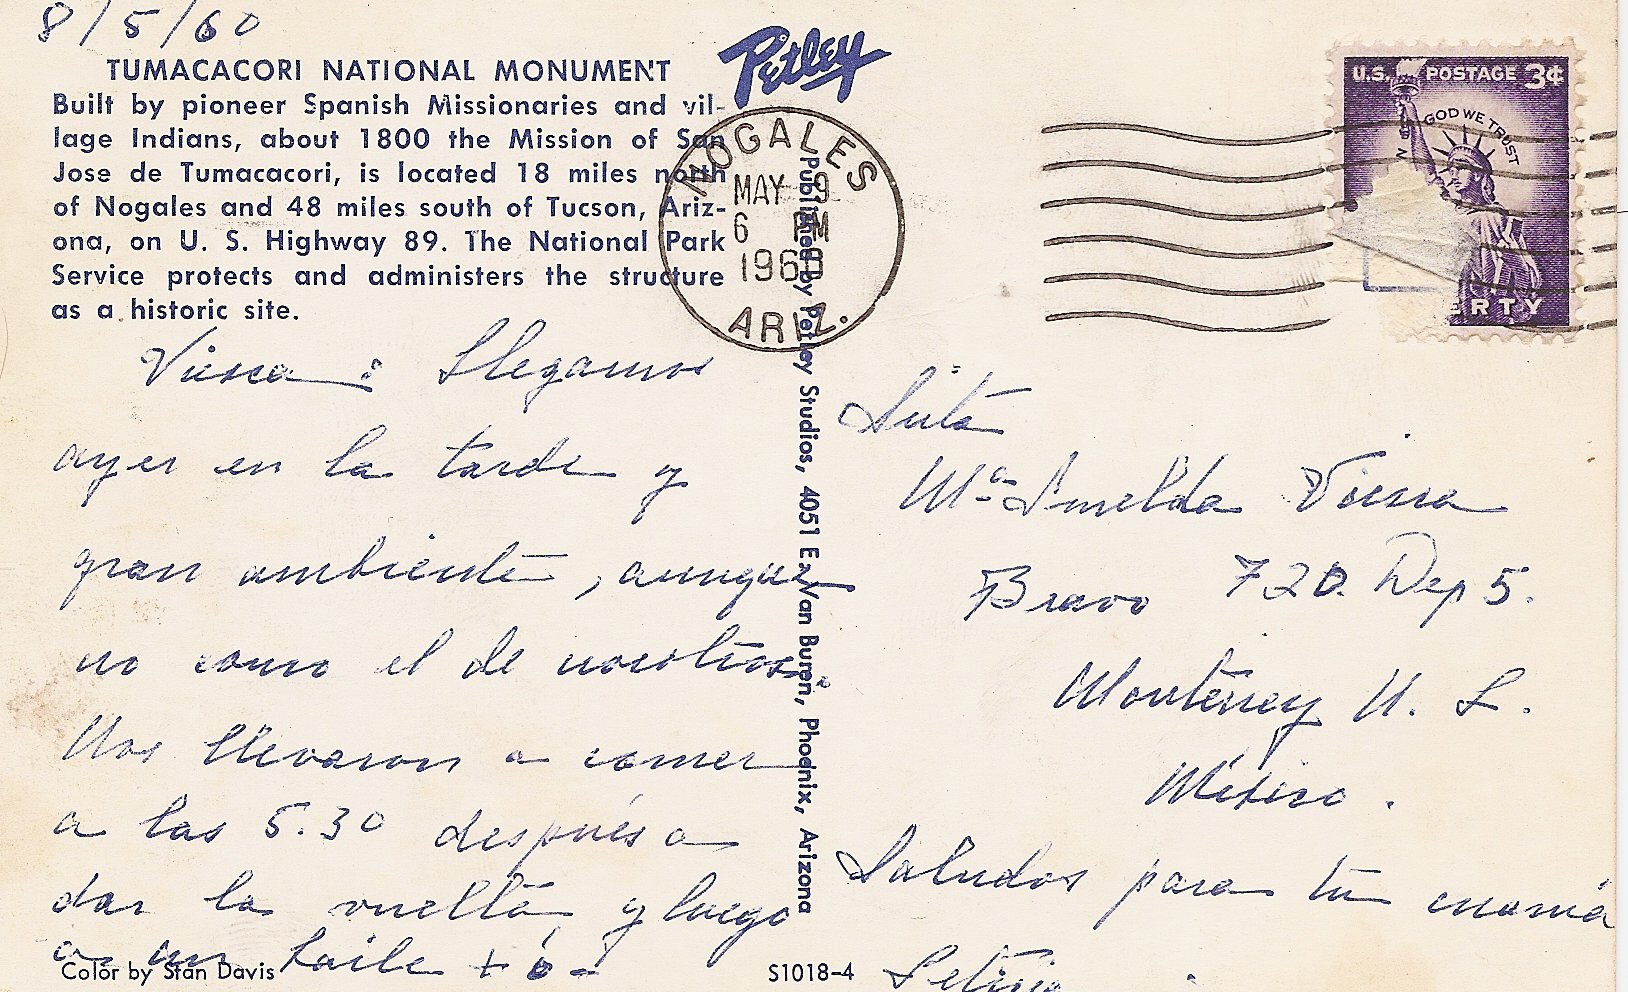 8/5/60
TUMACACORI NATIONAL MONUMENT
Built by pioneer Spanish Missionaries and vil-
lage Indians, about 1800 the Mission of San
Jose de Tumacacori, is located 18 miles north
of Nogales and 48 miles south of Tucson, Ariz-
ona, on U. S. Highway 89. The National Park
Service protects and administers the structure
as a historic site.
Viesca: Llegamos
ayer en la tarde y
gran ambiente, aunque
no como el de nosotros.
Nos llevaron a comer
a las 5.30 después a
dar la vuelta y luego
a un baile + ó -
Color by Stan Davis
Petley
Published by Petley Studios, 4051 E. Van Buren, Phoenix, Arizona
S1018-4
NOGALES
MAY 9
6 PM
1960
ARIZ.
U.S. POSTAGE 3¢
IN GOD WE TRUST
ERTY
Srita
Ma Imelda Viesca
Bravo 720. Dep 5.
Monterrey N. L.
México.
Saludos para tu mamá
Leticia